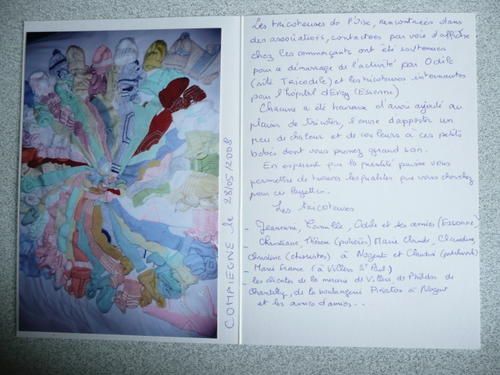 COMPIEGNE le 28/05/2008
Les tricoteuses de l'Oise, rencontrées dans
des associations, contactées par voie d'affiche
chez les commerçants ont été soutenues
pour le démarrage de l'activité par Odile
(site Tricodile) et les tricoteuses internautes
pour l'hôpital d'Evry (Essonne)
Chacune a été heureuse d'avoir ajouté au
plaisir de tricoter, l'envie d'apporter un
peu de chaleur et de couleurs à ces petits
bébés dont vous prenez grand soin.
En espérant que la quantité puisse vous
permettre de trouver les qualités que vous cherchez
pour ces layettes.
Les tricoteuses
- Jeannine, Camille, Odile et ses amies (Essonne)
- Christiane Thérèse Marie Claude, Claudine,
Christine à Nogent et Claudie
- Marie France (à Villers St Paul)
- les de la mairie de Villers, de
Chantilly, de la boulangerie à Nogent
et les amies d'amies...